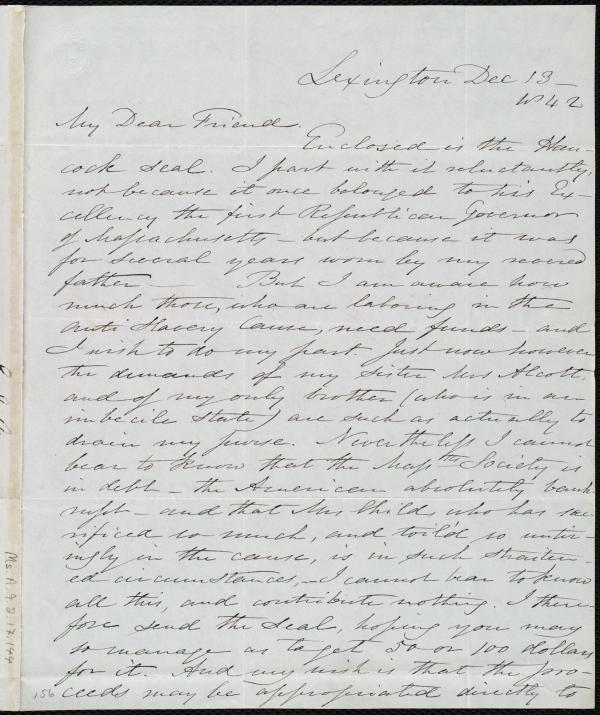 Lexington Dec 13 –
1842
My Dear Friend.
Enclosed is the Han-
cock seal. I part with it reluctantly,
not because it once belonged to his Ex-
cellency the first Republican Governor
of Massachusetts – but because it was
for several years worn by my revered
father – But I am aware how
much those, who are laboring in the
anti Slavery Cause, need funds – and
I wish to do my part. Just now however
the demands of my sister Mrs Alcott.
and of my only brother (who is in an
imbecile state) are such as actually to
drain my purse. Nevertheless I cannot
bear to know that the Mass tts Society is
in debt – the American absolutely bank-
rupt – and that Mrs Childs who has sac-
rificed so much, and toil'd so untir-
ingly in the cause, is in such straiten-
ed circumstances, – I cannot bear to know
all this, and contribute nothing. I there-
fore send the seal, hoping you may
so manage as to get 50 or 100 dollars
for it. And my wish is that the pro-
ceeds may be appropriated directly to
Ms. A. 9.2.17.144
156